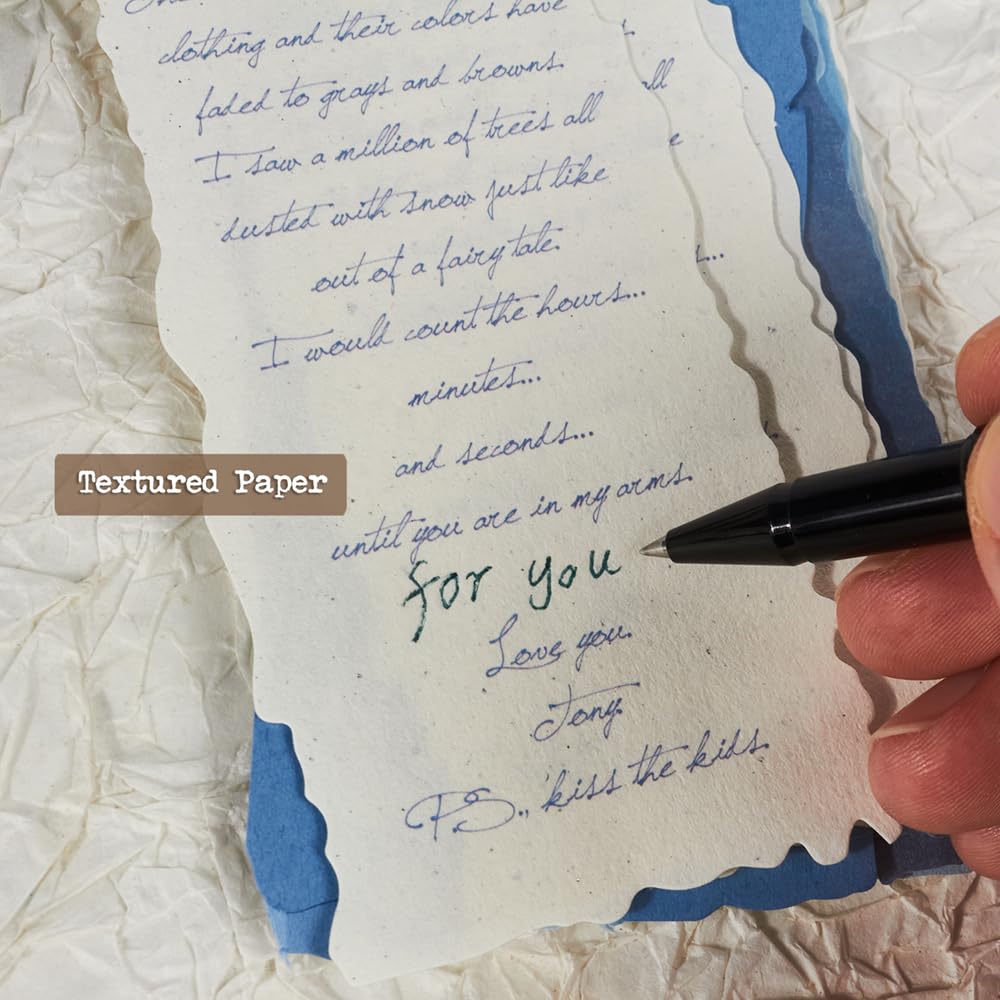 clothing and their colors have
faded to grays and browns.
I saw a million of trees all
dusted with snow just like
out of a fairy tale.
I would count the hours...
minutes...
and seconds...
until you are in my arms.
for you
Love you.
Tony.
P.S., kiss the kids.
Textured Paper